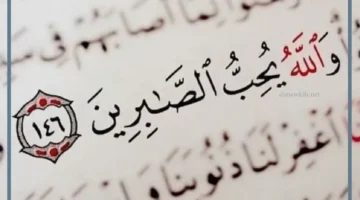 لِمَا أَصَابَهُمْ فِي
وَٱللَّهُ يُحِبُّ ٱلصَّـٰبِرِينَ ١٤٦
ٱغْفِرْ لَنَا ذُنُوبَنَا وَ